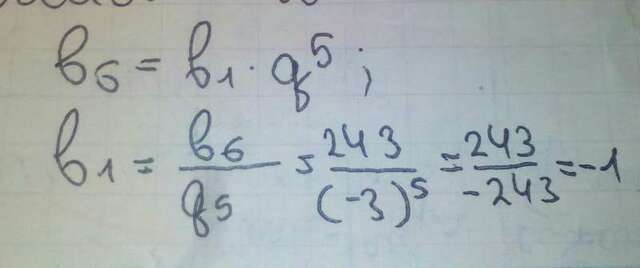 b₆ = b₁ · q⁵;
b₁ = b₆/q⁵ = 243/(-3)⁵ = 243/-243 = -1